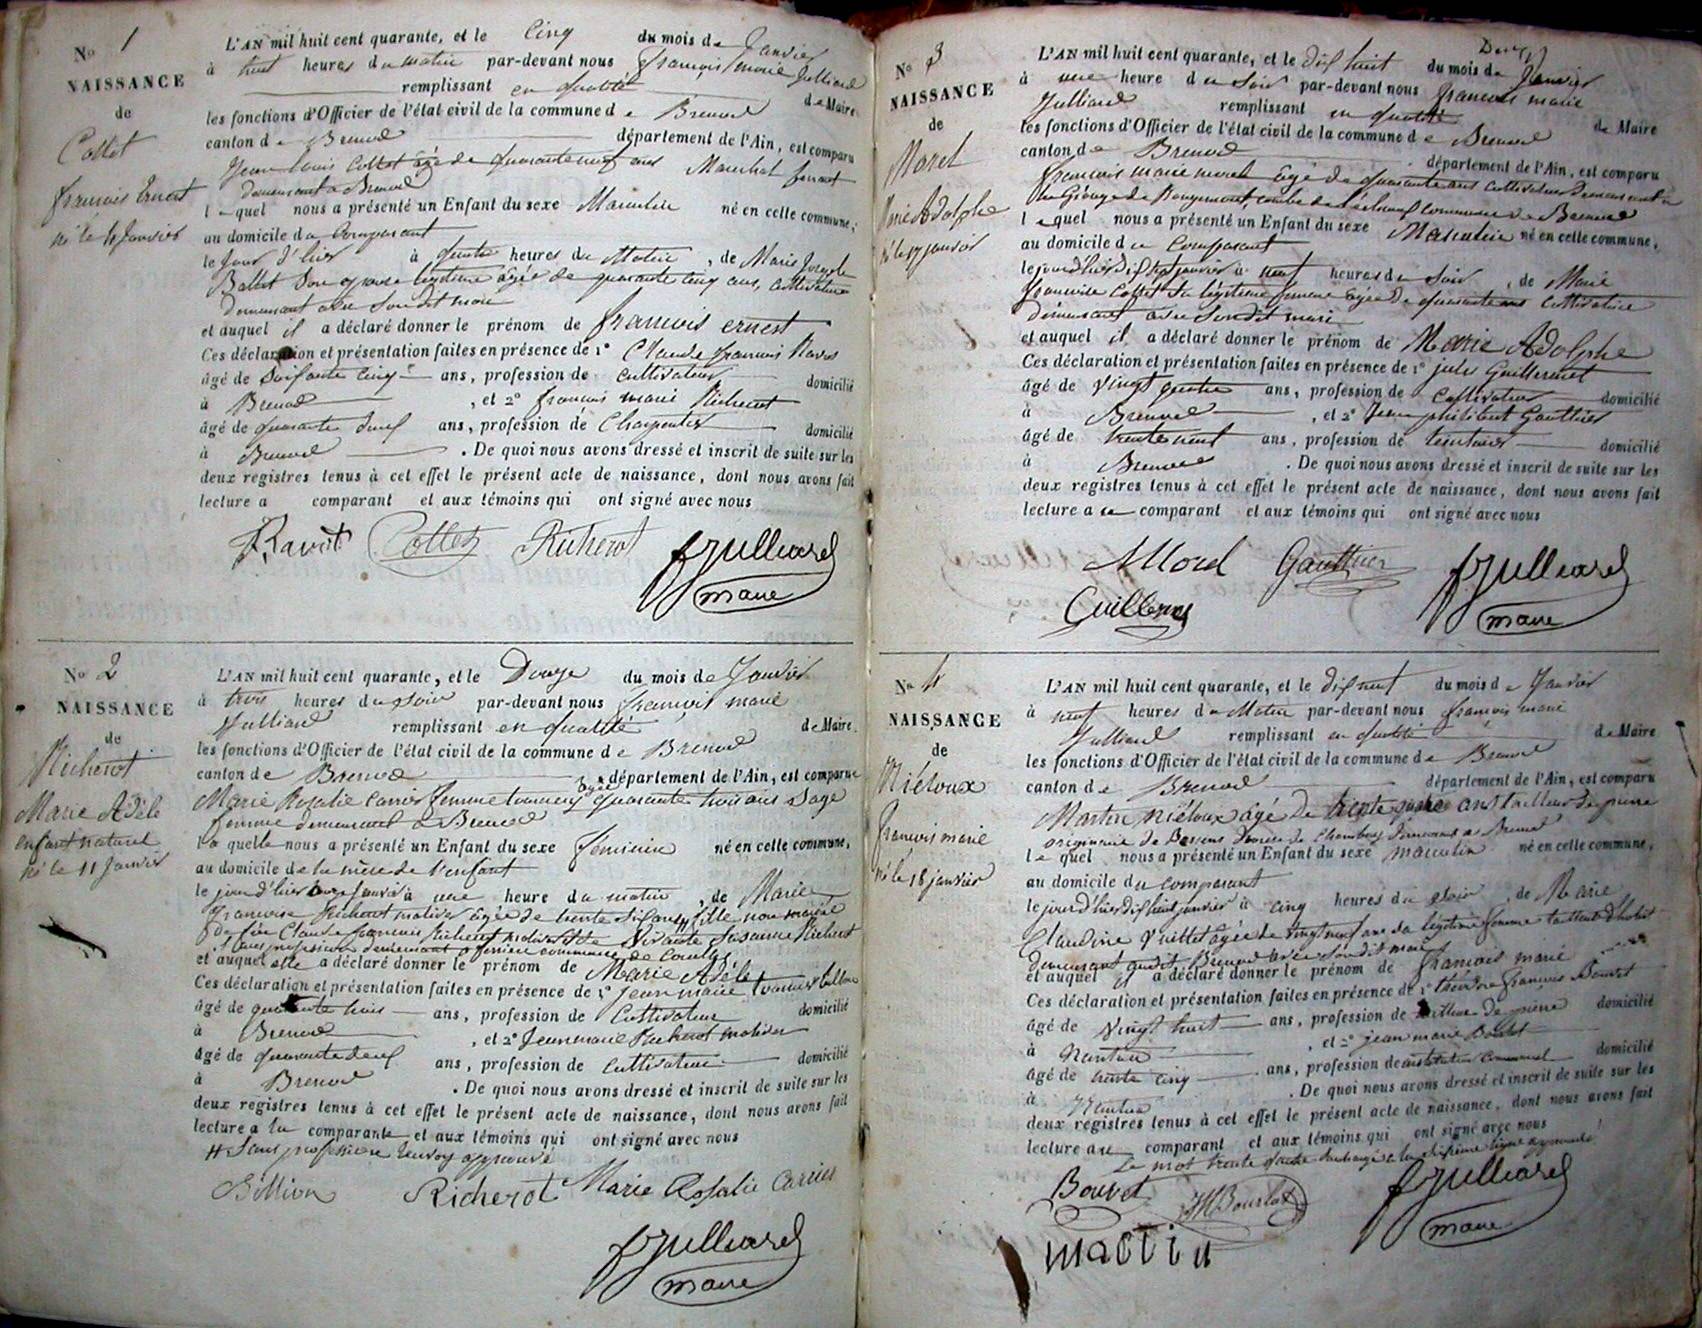 No 1
NAISSANCE
de
Collet
François Ernest
né le 4 Janvier
L'AN mil huit cent quarante, et le Cinq du mois de Janvier
à huit heures du matin par-devant nous François marie Julliard
remplissant en qualité de Maire
les fonctions d'Officier de l'état civil de la commune de Brenod
canton de Brenod département de l'Ain, est comparu
Jean Louis Collet âgé de quarante neuf ans Maréchal ferrant
demeurant à Brenod
lequel nous a présenté un Enfant du sexe Masculin né en cette commune,
au domicile du Comparant
le Jour d'hier à quatre heures du Matin, de Marie Josephe
Ballet Son epouse legitime âgée de quarante cinq ans, cultivatrice
demeurant avec Son dit mari
et auquel il a déclaré donner le prénom de françois ernest
Ces déclaration et présentation faites en présence de 1° Claude françois Ravot
âgé de Soixante cinq ans, profession de cultivateur domicilié
à Brenod, et 2° françois marie Richerot
âgé de quarante deux ans, profession de Charpentier domicilié
à Brenod. De quoi nous avons dressé et inscrit de suite sur les
deux registres tenus à cet effet le présent acte de naissance, dont nous avons fait
lecture a comparant et aux témoins qui ont signé avec nous
Ravot Collet Richerot fJulliard
maire
No 2
NAISSANCE
de
Richerot
Marie Adèle
enfant naturel
né le 11 Janvier
L'AN mil huit cent quarante, et le Douze du mois de Janvier
à trois heures du soir par-devant nous françois marie
Julliard remplissant en qualité de Maire
les fonctions d'Officier de l'état civil de la commune de Brenod
canton de Brenod département de l'Ain, est comparue
Marie Rosalie Carrier femme âgée quarante trois ans Sage
femme demeurant à Brenod
laquelle nous a présenté un Enfant du sexe féminin né en cette commune,
au domicile de la mère de l'enfant
le jour d'hier onze Janvier à une heure du matin, de Marie
françoise Richerot motivet âgée de trente six ans fille non mariée
de feu Claude françois Richerot et de Susanne Richerot
demeurant commune de
et auquel elle a déclaré donner le prénom de Marie Adèle
Ces déclaration et présentation faites en présence de 1° Jean marie
âgé de quarante trois ans, profession de Cultivateur domicilié
à Brenod, et 2° Jean marie Richerot motivet
âgé de quarante deux ans, profession de cultivateur domicilié
à Brenod. De quoi nous avons dressé et inscrit de suite sur les
deux registres tenus à cet effet le présent acte de naissance, dont nous avons fait
lecture a la comparante et aux témoins qui ont signé avec nous
# Sans profession renvoy approuvé
Billion Richerot Marie Rosalie Carrier
fJulliard
maire
No 3
NAISSANCE
de
Morel
Marie Adolphe
né le 17 janvier
L'AN mil huit cent quarante, et le dix huit du mois de Janvier
à une heure du Soir par-devant nous françois marie
Julliard remplissant en qualité de Maire
les fonctions d'Officier de l'état civil de la commune de Brenod
canton de Brenod département de l'Ain, est comparu
françois marie morel âgé de quarante ans cultivateur demeurant à
la Grange de Rougemont commune de Brenod
lequel nous a présenté un Enfant du sexe Masculin né en cette commune,
au domicile du Comparant
le jour d'hier dix sept janvier à neuf heures du Soir, de Marie
françoise Collet Sa légitime femme âgée de quarante ans cultivatrice
demeurant avec Son dit mari
et auquel il a déclaré donner le prénom de Marie Adolphe
Ces déclaration et présentation faites en présence de 1° jules Guillermet
âgé de vingt quatre ans, profession de Cultivateur domicilié
à Brenod, et 2° Jean philibert Gauthier
âgé de trente neuf ans, profession de teinturier domicilié
à Brenod. De quoi nous avons dressé et inscrit de suite sur les
deux registres tenus à cet effet le présent acte de naissance, dont nous avons fait
lecture a u comparant et aux témoins qui ont signé avec nous
Morel Gauthier fJulliard
Guillermet maire
No 4
NAISSANCE
de
Niéloux
François marie
né le 18 janvier
L'AN mil huit cent quarante, et le dix neuf du mois de Janvier
à neuf heures du Matin par-devant nous françois marie
Julliard remplissant en qualité de Maire
les fonctions d'Officier de l'état civil de la commune de Brenod
canton de Brenod département de l'Ain, est comparu
Martin Niéloux âgé de trente quatre ans tailleur de pierre
originaire de demeurant à Brenod
lequel nous a présenté un Enfant du sexe masculin né en cette commune,
au domicile du comparant
le jour d'hier dix huit janvier à cinq heures du soir, de Marie
Claudine Vuillet âgée de vingt neuf ans sa légitime femme tailleuse d'habit
demeurant audit Brenod avec Son dit mari
et auquel il a déclaré donner le prénom de françois marie
Ces déclaration et présentation faites en présence de 1° théodore françois Bouvet
âgé de vingt huit ans, profession de tailleur de pierre domicilié
à Nantua, et 2° jean marie Bourlot
âgé de trente cinq ans, profession de instituteur communal domicilié
à Nantua. De quoi nous avons dressé et inscrit de suite sur les
deux registres tenus à cet effet le présent acte de naissance, dont nous avons fait
lecture au comparant et aux témoins qui ont signé avec nous
Le mot trente quatre surchargé à la sixième ligne approuvé
Bouvet JM Bourlot fJulliard
martin maire